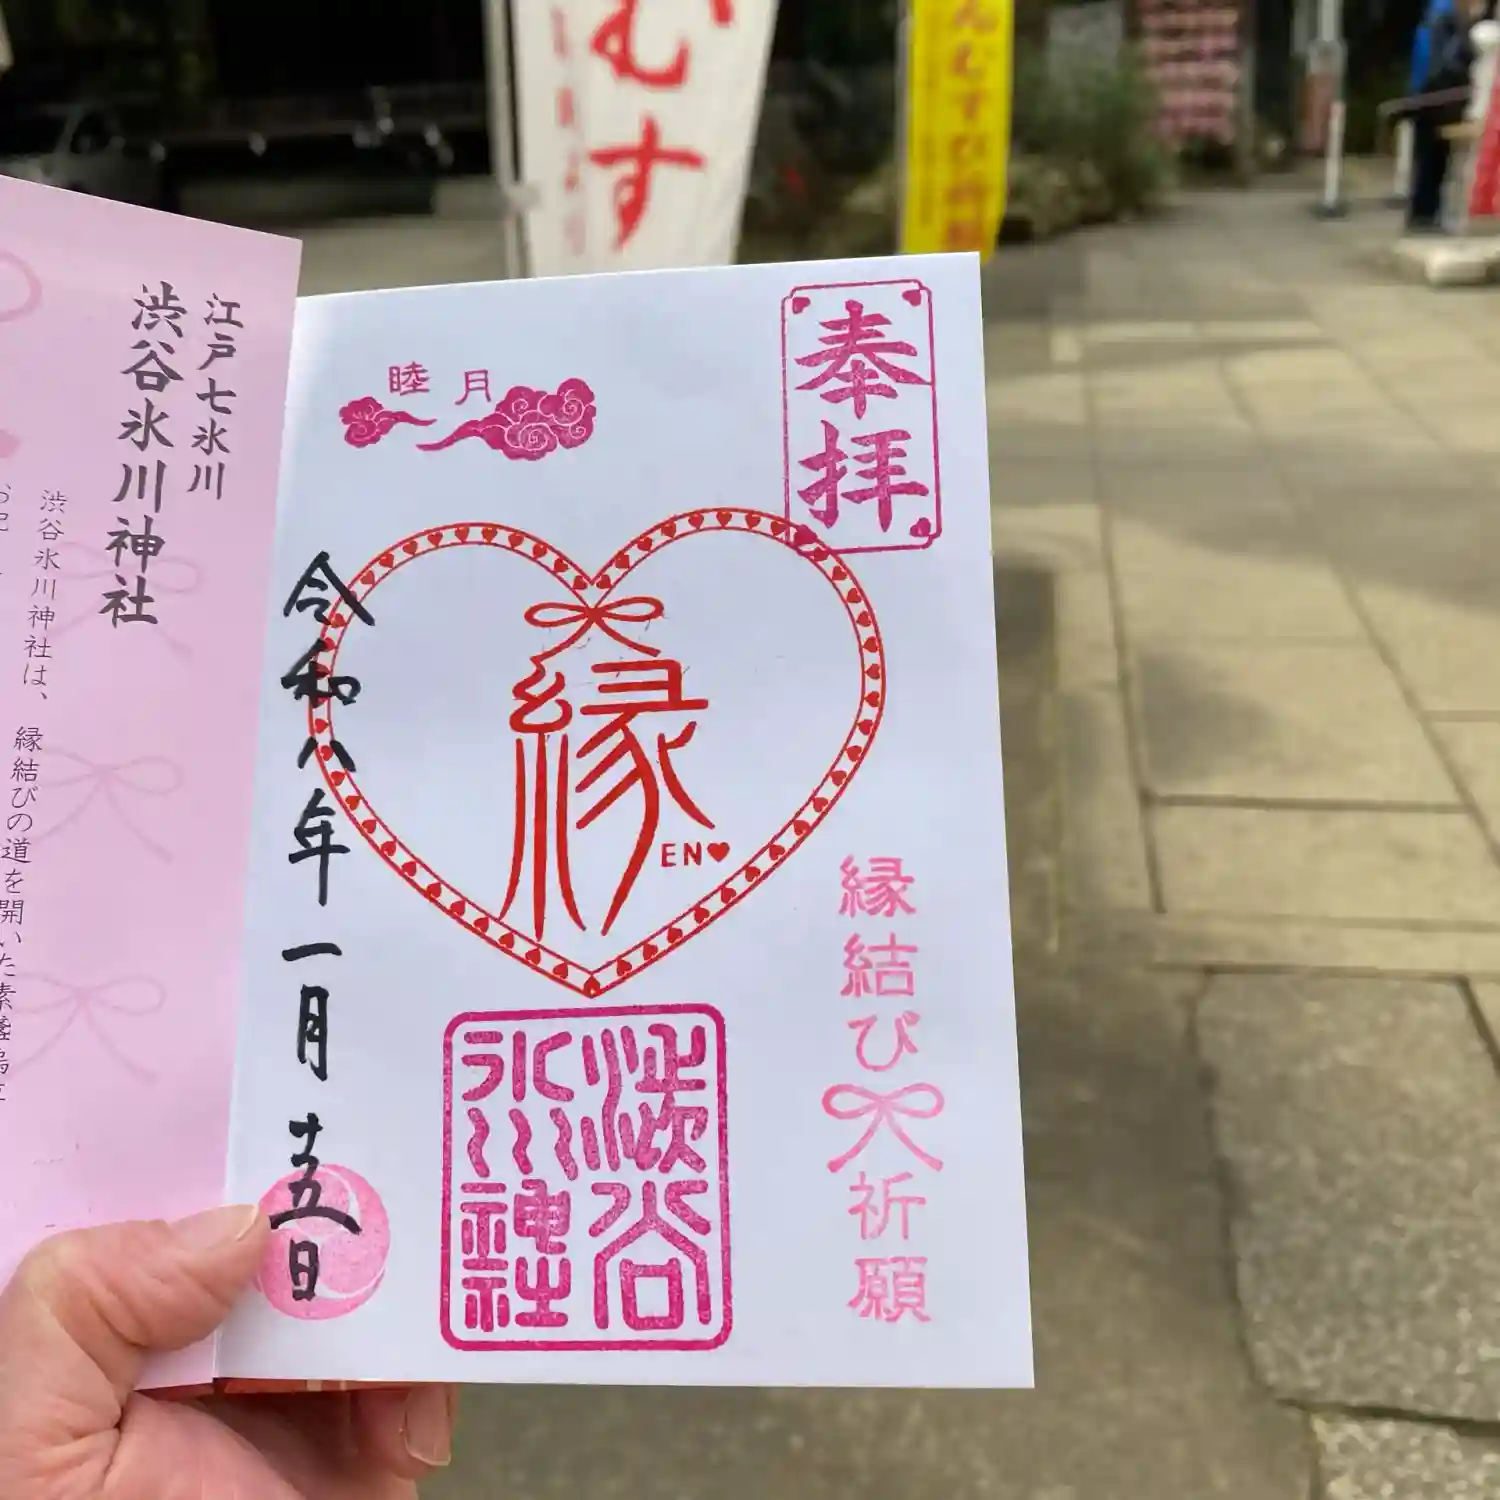 むす
んむすび
江戸七氷川
渋谷氷川神社
渋谷氷川神社は、縁結びの道を開いた素
睦月
奉拝
縁
EN♥
令和八年一月十五日
縁結び祈願
渋谷
氷川
神社